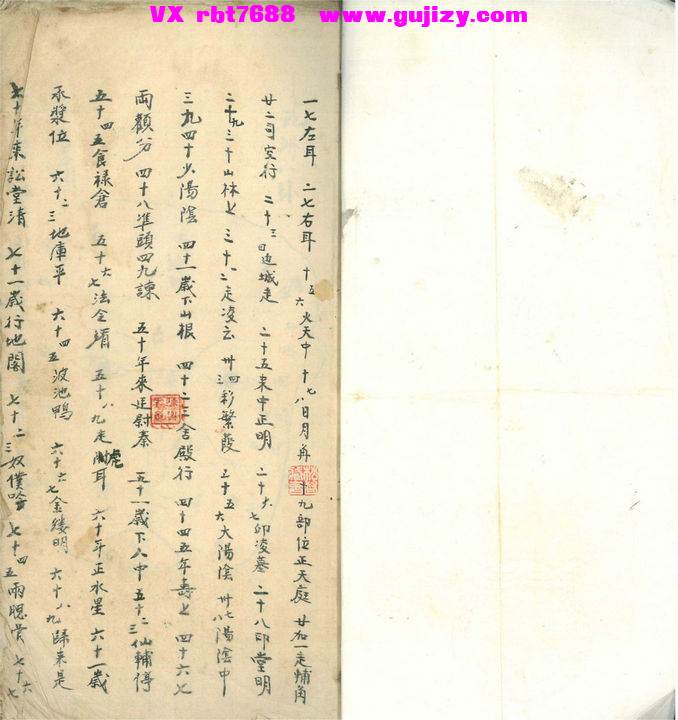 VX rbt7688 www.gujizy.com
一七左耳 二七右耳 十五六火天中 十七八日月角 十九部位正天庭 廿加一走輔角
廿二司空行 二十三四边城走 二十五来中正明 二十六七卯凌墓 二十八印堂明
二十九三十山林上 三十一二走凌云 卅三四彩繁霞 三十五六太陽陰 卅七八陽陰中
三九四十少陽陰 四十一歲下山根 四十二三舍殿行 四十四五年壽上 四十六七
兩顴分 四十八準頭四九諫 五十年來廷尉秦 五十一歲下人中 五十二三仙輔停
五十四五食祿倉 五十六七法令 五十八九走虎耳 六十年正水星 六十一歲
承漿位 六十二三地庫平 六十四五波池鴨 六十六七金縷明 六十八九歸來是
七十年來訟堂清 七十一歲行地閣 七十二三奴僕 七十四五兩腮骨 七十六七